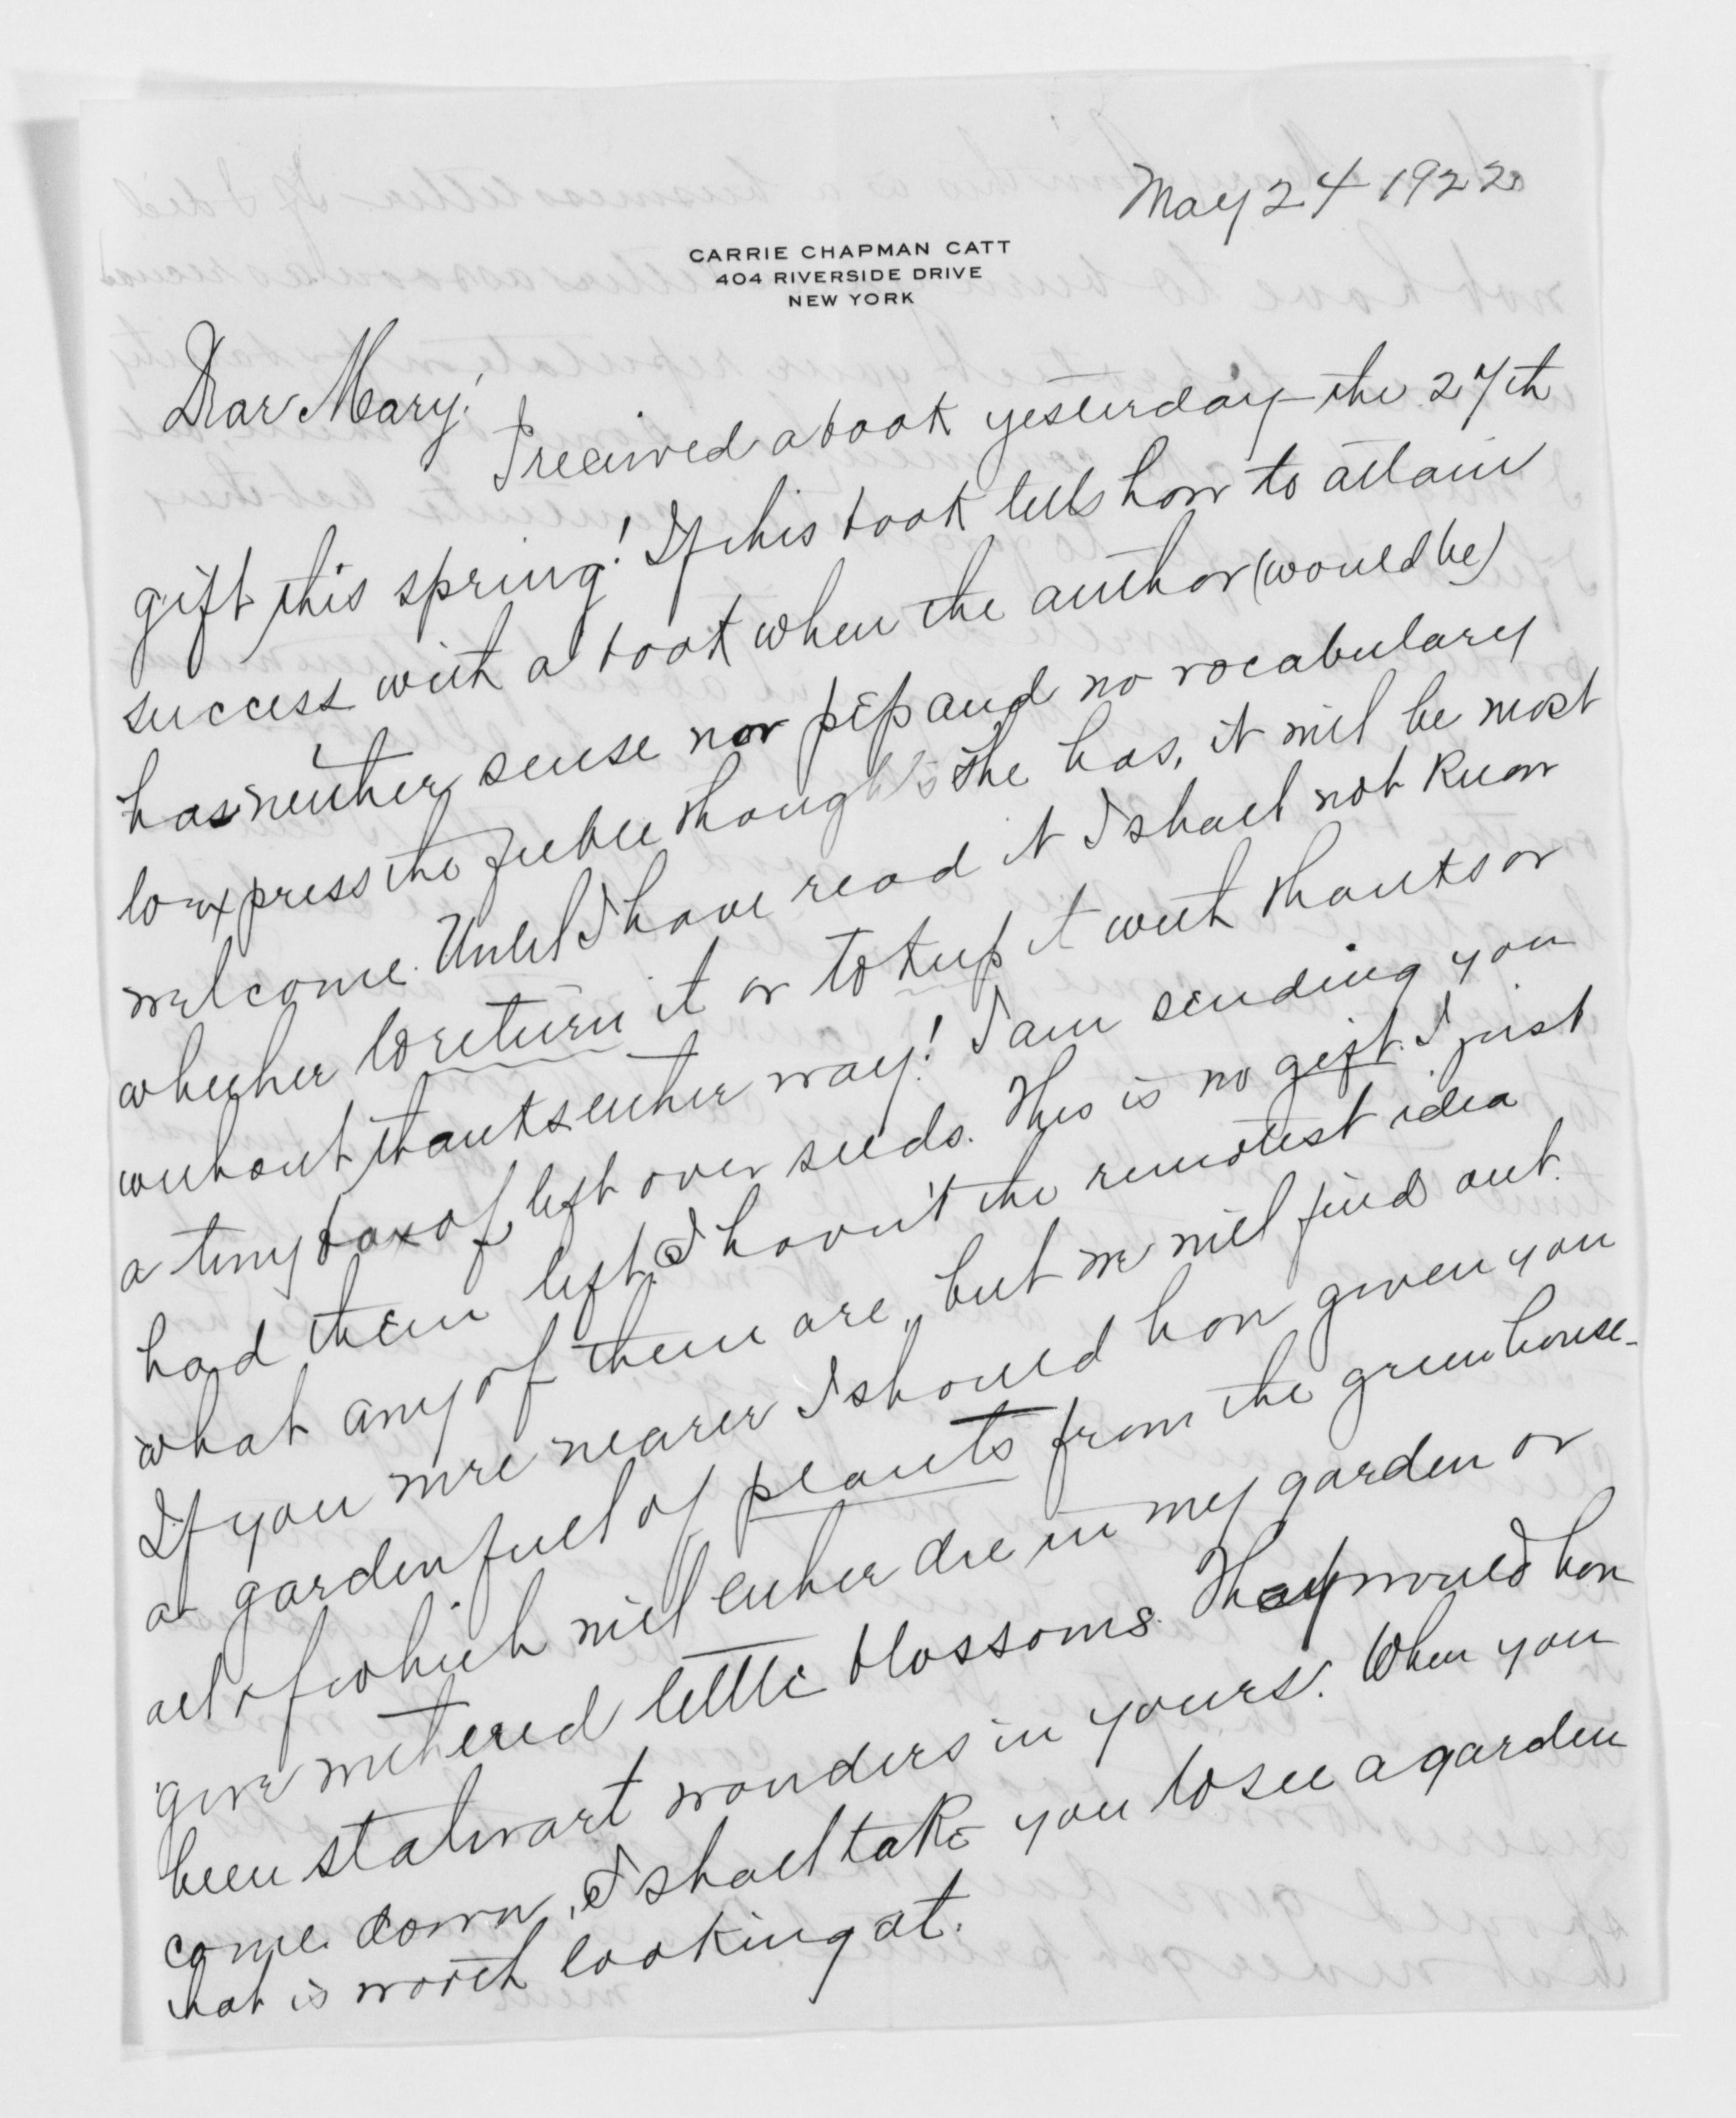 May 24 1922
CARRIE CHAPMAN CATT
404 RIVERSIDE DRIVE
NEW YORK
Dear Mary:
I received a book yesterday - the 27th
gift this spring! If this book tells how to attain
success with a book when the author (would be)
has neither sense nor pep and no vocabulary
to express the feeble thoughts she has, it will be most
welcome. Until I have read it I shall not know
whether to return it or to keep it with thanks or
without thanks either way! I am sending you
a tiny box of left over seeds. This is no gift. I just
had them left. I haven't the remotest idea
what any of them are, but we will find out.
If you were nearer I should have given you
a garden full of plants from the greenhouse -
all of which will either die in my garden or
give withered little blossoms. They would have
been stalwart wonders in yours. When you
come down, I shall take you to see a garden
that is worth looking at.